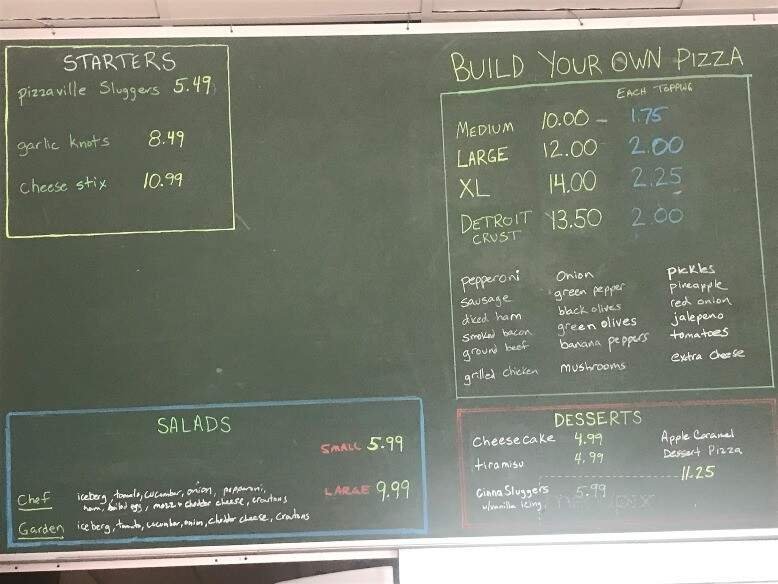 STARTERS
pizzaville Sluggers 5.49
garlic knots 8.49
cheese stix 10.99
BUILD YOUR OWN PIZZA
EACH TOPPING
MEDIUM 10.00 - 1.75
LARGE 12.00 2.00
XL 14.00 2.25
DETROIT CRUST 13.50 2.00
pepperoni Onion pickles
sausage green pepper pineapple
diced ham black olives red onion
smoked bacon green olives jalepeno
ground beef banana peppers tomatoes
grilled chicken mushrooms extra cheese
SALADS
SMALL 5.99
LARGE 9.99
Chef iceberg, tomato, cucumber, onion, pepperoni,
ham, boiled egg, mozz + cheddar cheese, croutons
Garden iceberg, tomato, cucumber, onion, cheddar cheese, croutons
DESSERTS
Cheesecake 4.99
tiramisu 4.99
Cinna Sluggers 5.99
w/vanilla icing
Apple Caramel
Dessert Pizza
11.25